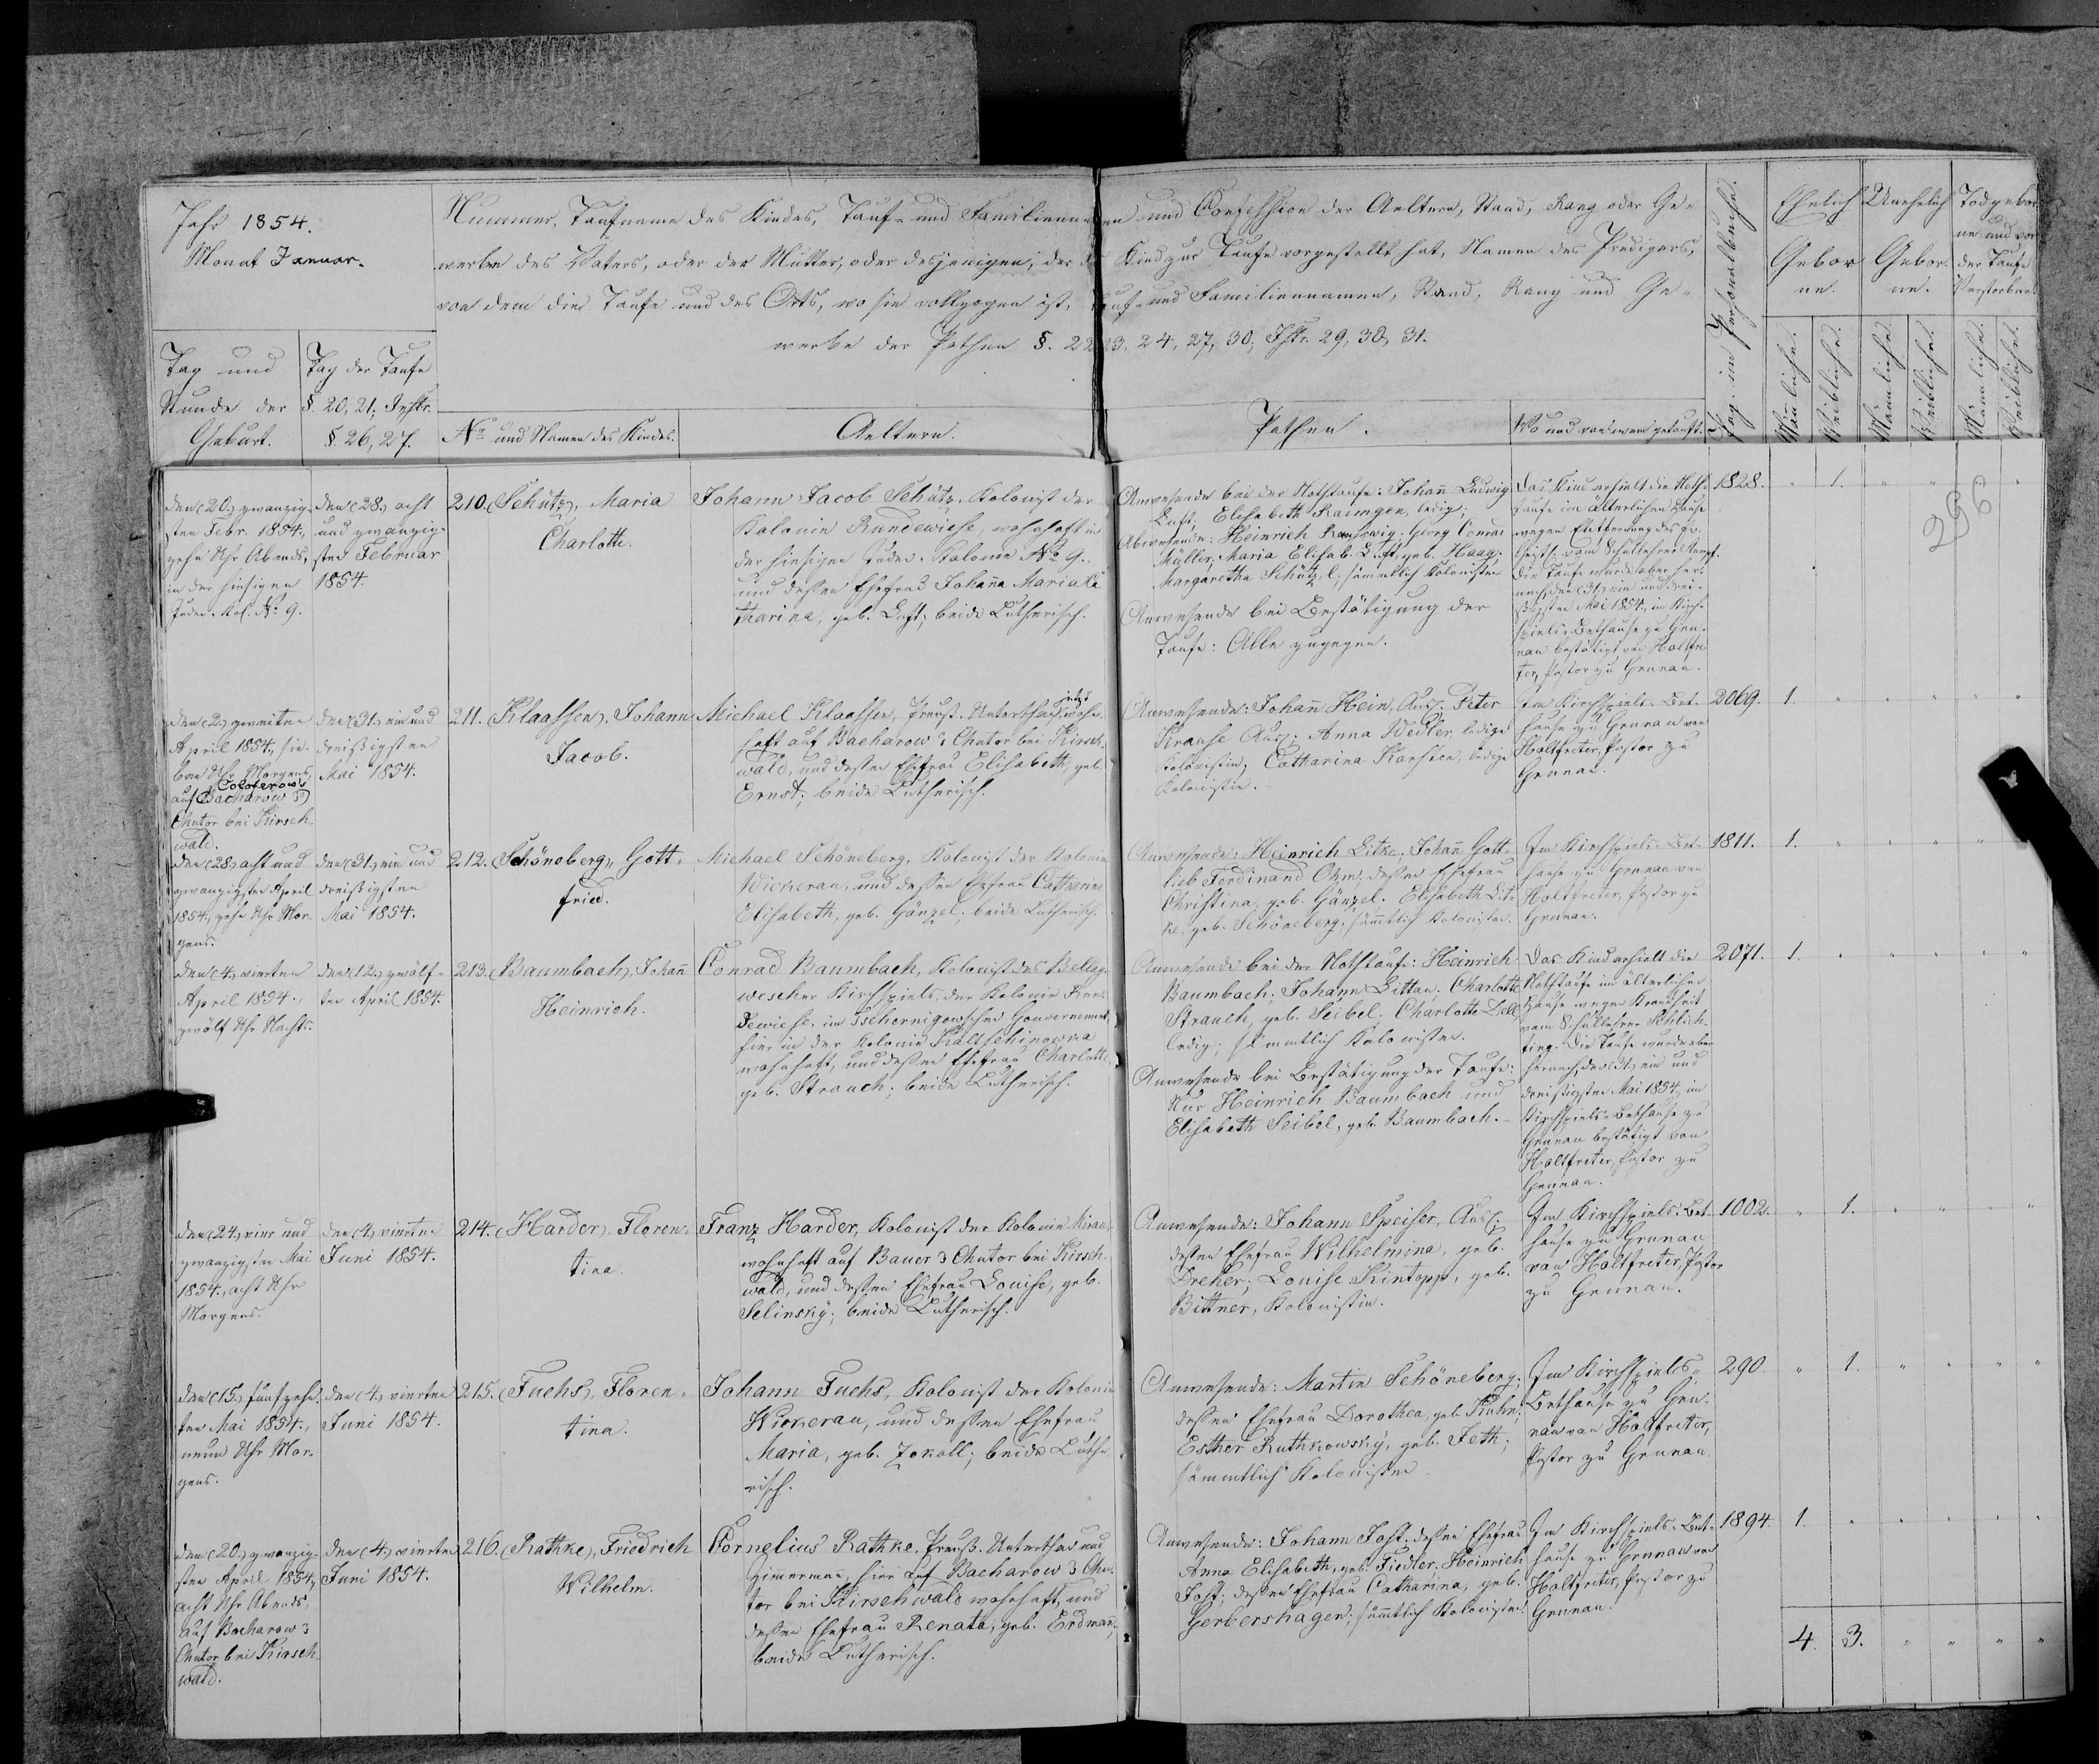 Jahr 1854.
Monat Januar.
Nummer, Taufname des Kindes, Tauf- und Familiennamen und Confession der Aeltern, Stand, Rang oder Ge-
werbe des Vaters, oder der Mutter, oder desjenigen, der das Kind zur Taufe vorgestellt hat, Namen des Predigers,
von dem die Taufe und des Orts, wo sie vollzogen ist, Tauf- und Familiennamen, Stand, Rang und Ge-
werbe der Pathen §. 22, 23, 24, 27, 30, Istr. 29, 30, 31.
Tag und
Stunde der
Geburt.
Tag der Taufe
§. 20, 21; Instr.
§. 26, 27.
No und Namen des Kindes.
Aeltern.
Pathen.
Wo und von wem getauft.
Pag. im Personalbuche.
Ehelich
Gebor
ne.
Unehelich
Gebor
ne.
Todgebor
ne und vor
der Taufe
Verstorbene.
Männliche.
Weibliche.
Männliche.
Weibliche.
Männliche.
Weibliche.
296
den (20.) zwanzig-
sten Febr. 1854.,
zehn Uhr Abends,
in der hiesigen
Juden-Kol. No 9.
den (28.) acht
und zwanzig-
sten Februar
1854.
210. (Schütz), Maria
Charlotte.
Johann Jacob Schütz, Kolonist der
Kolonie Rundewiese, wohnhaft in
der hiesigen Juden-Kolonie No 9.,
und dessen Ehefrau Johanna Maria Ca-
tharina, geb. Luft; beide Lutherisch.
Anwesende bei der Nothtaufe: Johann Ludwig
Luft, Elisabeth Ramge, ledig;
Abwesende: Heinrich Georg Conrad
Müller, Maria Elisab. Luft, geb. Haag.
Margaretha Schütz, l.; sämmtlich Kolonisten
Anwesende bei Bestätigung der
Taufe: Alle zugegen.
Das Kind erhielt die Noth-
taufe im älterlichen Hause
wegen Entfernung des
Geistl. vom Schullehrer
Die Taufe wurde aber her-
nach den (31.) ein und drei-
ßigsten Mai 1854., im Kirch-
spiels-Bethause zu Gru-
nau bestätigt von Holtfre-
ter, Pastor zu Grunau.
1828. " 1. " " " "
den (2.) zweiten
April 1854., sie-
ben Uhr Morgens,
Coloferow's
auf Bacharow's
Chutor bei Kirsch-
wald.
den (31.) ein und
dreißigsten
Mai 1854.
211. (Klaassen), Johann
Jacob.
Michael Klaassen, Preuß. Unterthan, jetzt wohn-
haft auf Bacharow's Chutor bei Kirsch-
wald, und dessen Ehefrau Elisabeth, geb.
Ernst; beide Lutherisch.
Anwesende: Johann Hein, Ausl. Peter
Krause Ausl.; Anna Wedler, ledige
Kolonistin; Catharina Karsten, ledige
Kolonistin.
Im Kirchspiels-Bet-
hause zu Grunau von
Holtfreter, Pastor zu
Grunau.
2069. 1. " " " " "
den (28.) acht und
zwanzigsten April
1854., zehn Uhr Mor-
gens.
den (31.) ein und
dreißigsten
Mai 1854.
212. (Schöneberg), Gott-
fried.
Michael Schöneberg, Kolonist der Kolonie
Wickerau, und dessen Ehefrau Catharina
Elisabeth, geb. Gänzel; beide Lutherisch.
Anwesende: Heinrich Litke; Johann Gott-
lieb Ferdinand Ohm; dessen Ehefrau
Christina, geb. Gänzel. Elisabeth Lit-
ke, geb. Schöneberg; sämmtlich Kolonisten.
Im Kirchspiels-Bet-
hause zu Grunau von
Holtfreter, Pastor zu
Grunau.
1811. 1. " " " " "
den (4.) vierten
April 1854.,
zwölf Uhr Nachts.
den (12.) zwölf-
ten April 1854.
213. (Baumbach), Johann
Heinrich.
Conrad Baumbach, Kolonist des Bellag-
wescher Kirchspiels, der Kolonie Run-
dewiese, im Tschernigowschen Gouvernement,
hier in der Kolonie Kaltschinowka
wohnhaft, und dessen Ehefrau Charlotte,
geb. Strauch; beide Lutherisch.
Anwesende bei der Nothtaufe: Heinrich
Baumbach; Johann Littau; Charlotte
Strauch, geb. Seibel. Charlotte Dell
ledig; sämmtlich Kolonisten.
Anwesende bei Bestätigung der Taufe:
Nur Heinrich Baumbach und
Elisabeth Seibel, geb. Baumbach.
Das Kind erhielt die
Nothtaufe im älterlichen
Hause wegen Krankheit
vom Schullehrer Schlich-
ting. Die Taufe wurde aber
hernach, den (31.) ein und
dreißigsten Mai 1854., im
Kirchspiels-Bethause zu
Grunau bestätigt von
Holtfreter, Pastor zu
Grunau.
2071. 1. " " " " "
den (24.) vier und
zwanzigsten Mai
1854., acht Uhr
Morgens.
den (4.) vierten
Juni 1854.
214. (Harder), Floren-
tina.
Franz Harder, Kolonist der Kolonie Mirau,
wohnhaft auf Bauer's Chutor bei Kirsch-
wald, und dessen Ehefrau Louise, geb.
Selinsky; beide Lutherisch.
Anwesende: Johann Speiser, Ausl.;
dessen Ehefrau Wilhelmina, geb.
Dreher; Louise Kintopp, geb.
Bittner, Kolonistin.
Im Kirchspiels-Bet-
hause zu Grunau
von Holtfreter, Pastor
zu Grunau.
1002. " 1. " " " "
den (15.) fünfzehn-
ten Mai 1854.,
neun Uhr Mor-
gens.
den (4.) vierten
Juni 1854.
215. (Fuchs), Floren-
tina.
Johann Fuchs, Kolonist der Kolonie
Wickerau, und dessen Ehefrau
Maria, geb. Zokoll; beide Luthe-
risch.
Anwesende: Martin Schöneberg;
dessen Ehefrau Dorothea, geb. Kuhn;
Esther Ruthkowsky, geb. Feth;
sämmtlich Kolonisten.
Im Kirchspiels-
Bethause zu Gru-
nau von Holtfreter,
Pastor zu Grunau.
290. " 1. " " " "
den (20.) zwanzig-
sten April 1854.,
acht Uhr Abends,
auf Bacharow's
Chutor bei Kirsch-
wald.
den (4.) vierten
Juni 1854.
216. (Rathke), Friedrich
Wilhelm.
Cornelius Rathke, Preuß. Unterthan und
Zimerman, hier auf Bacharow's Chu-
tor bei Kirschwald wohnhaft, und
dessen Ehefrau Renata, geb. Erdmann;
beide Lutherisch.
Anwesende: Johann Jost; dessen Ehefrau
Anna Elisabeth, geb. Fiedler. Heinrich
Jost; dessen Ehefrau Catharina, geb.
Gerbershagen; sämmtlich Kolonisten.
Im Kirchspiels-Bet-
hause zu Grunau von
Holtfreter, Pastor zu
Grunau.
1894. 1. " " " " "
4. 3. " " " "